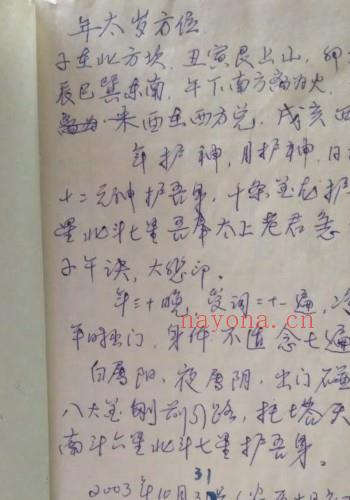 年太岁方位
子东北方坎,丑寅艮上山,卯
辰巳巽东南,午下南方离为火,
未酉在西方兑,戌亥西
年护神,月护神,日
十二元神护吾身,千条金龙护
星北斗七星吾奉太上老君急
子午诀,大悲印。
年三十晚,发词二十一遍,
平时出门,条件不道念七遍
白属阳,夜属阴,出门碰
八大金刚前引路,托塔天
南斗六星北斗七星护吾身。
31
2003年10月
nayona.cn